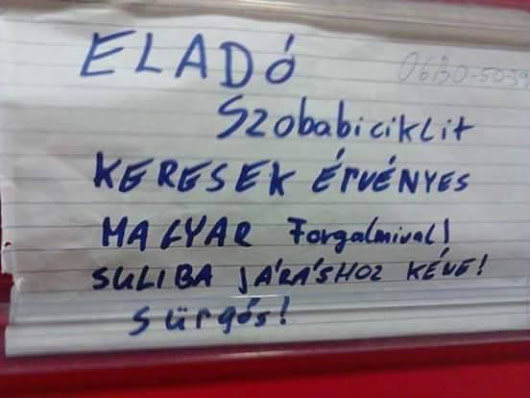 ELADÓ
Szobabiciklit
KERESEK ÉRVÉNYES
MAGYAR Forgalmival!
SULIBA JÁRÁSHOZ KÉNE!
Sürgős!